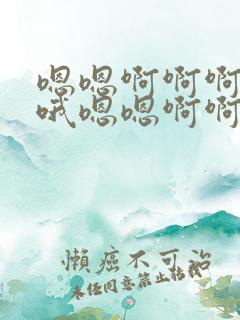 嗯嗯啊啊啊
哦嗯嗯啊啊
懒癌不可治
未经同意禁止转载